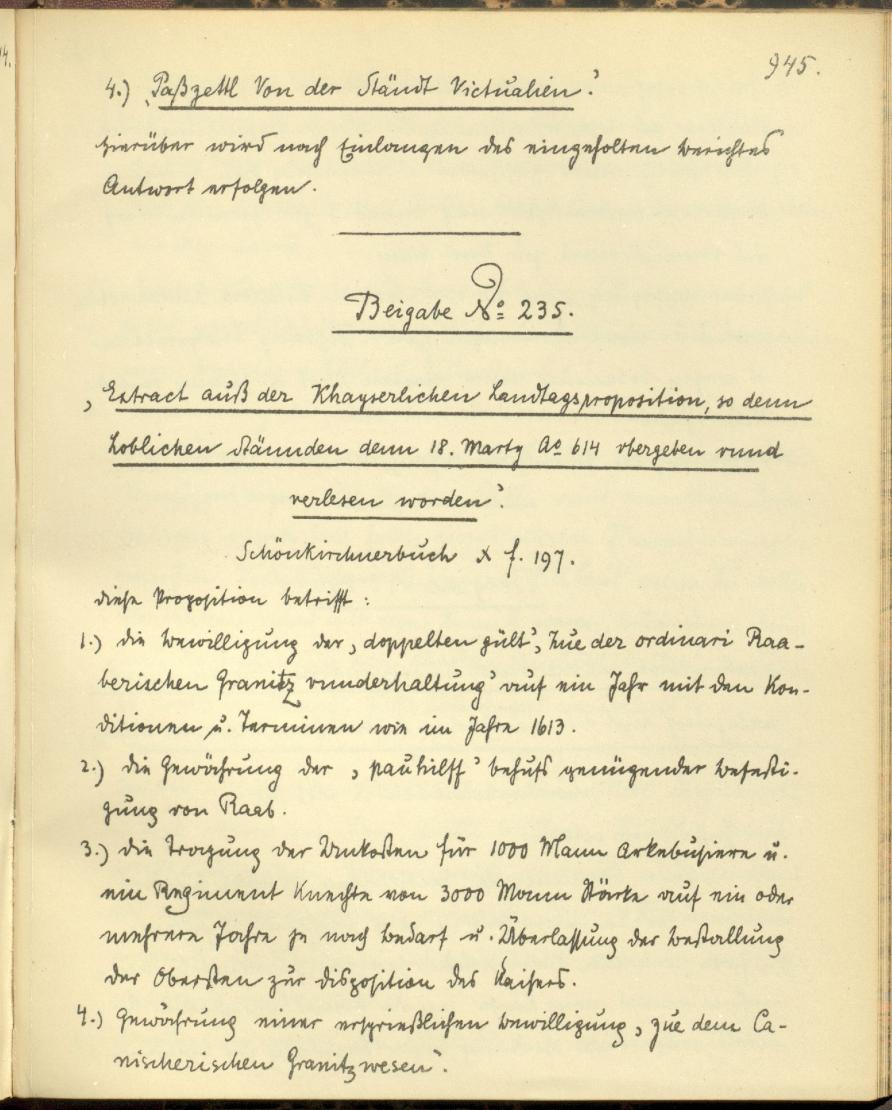 945.
4.) „Paßzettl Von der Ständt Victualien".
hierüber wird nach Einlangen des eingeholten Berichtes
Antwort erfolgen.
Beigabe No 235.
„Extract auß der Khayserlichen Landtagsproposition, so denn
Loblichen Stännden denn 18. Marty Ao 614 vbergeben vnnd
verlesen worden".
Schönkirchnerbuch X f. 197.
diese Proposition betrifft:
1.) die Bewilligung der „doppelten gült", „zue der ordinari Raa-
berischen Granitz vnnderhaltung" auf ein Jahr mit den Kon-
ditionen u. Terminen wie im Jahre 1613.
2.) die Gewährung der „pauhilff" behufs genügender Befesti-
gung von Raab.
3.) die Tragung der Unkosten für 1000 Mann Arkebusiere u.
ein Regiment Knechte von 3000 Mann Stärke auf ein oder
mehrere Jahre je nach Bedarf u. Überlassung der Bestallung
der Obersten zur Disposition des Kaisers.
4.) Gewährung einer ersprießlichen Bewilligung „zue dem Ca-
nischerischen Granitzwesen".